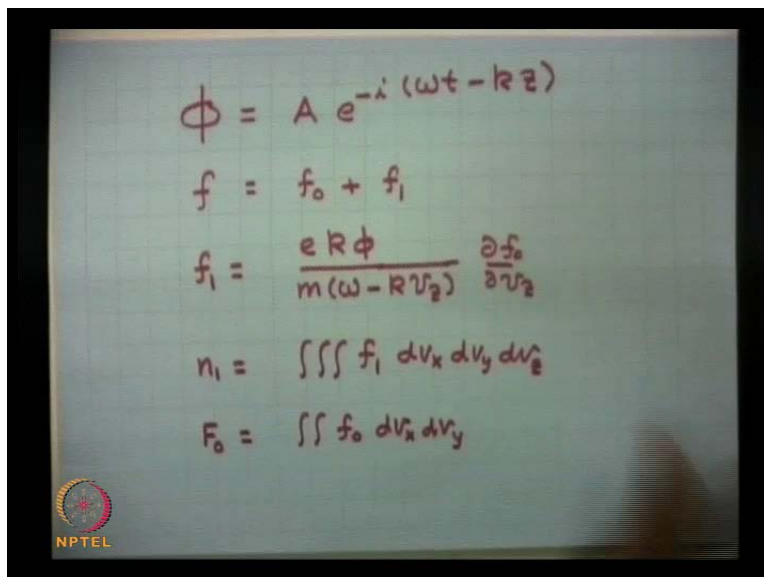 ϕ = A e^{-i (ωt - kz)}
f = f₀ + f₁
f₁ = \frac{e k ϕ}{m(ω - k v_z)} \frac{∂f₀}{∂v_z}
n₁ = ∫∫∫ f₁ dv_x dv_y dv_z
F₀ = ∫∫ f₀ dv_x dv_y
NPTEL